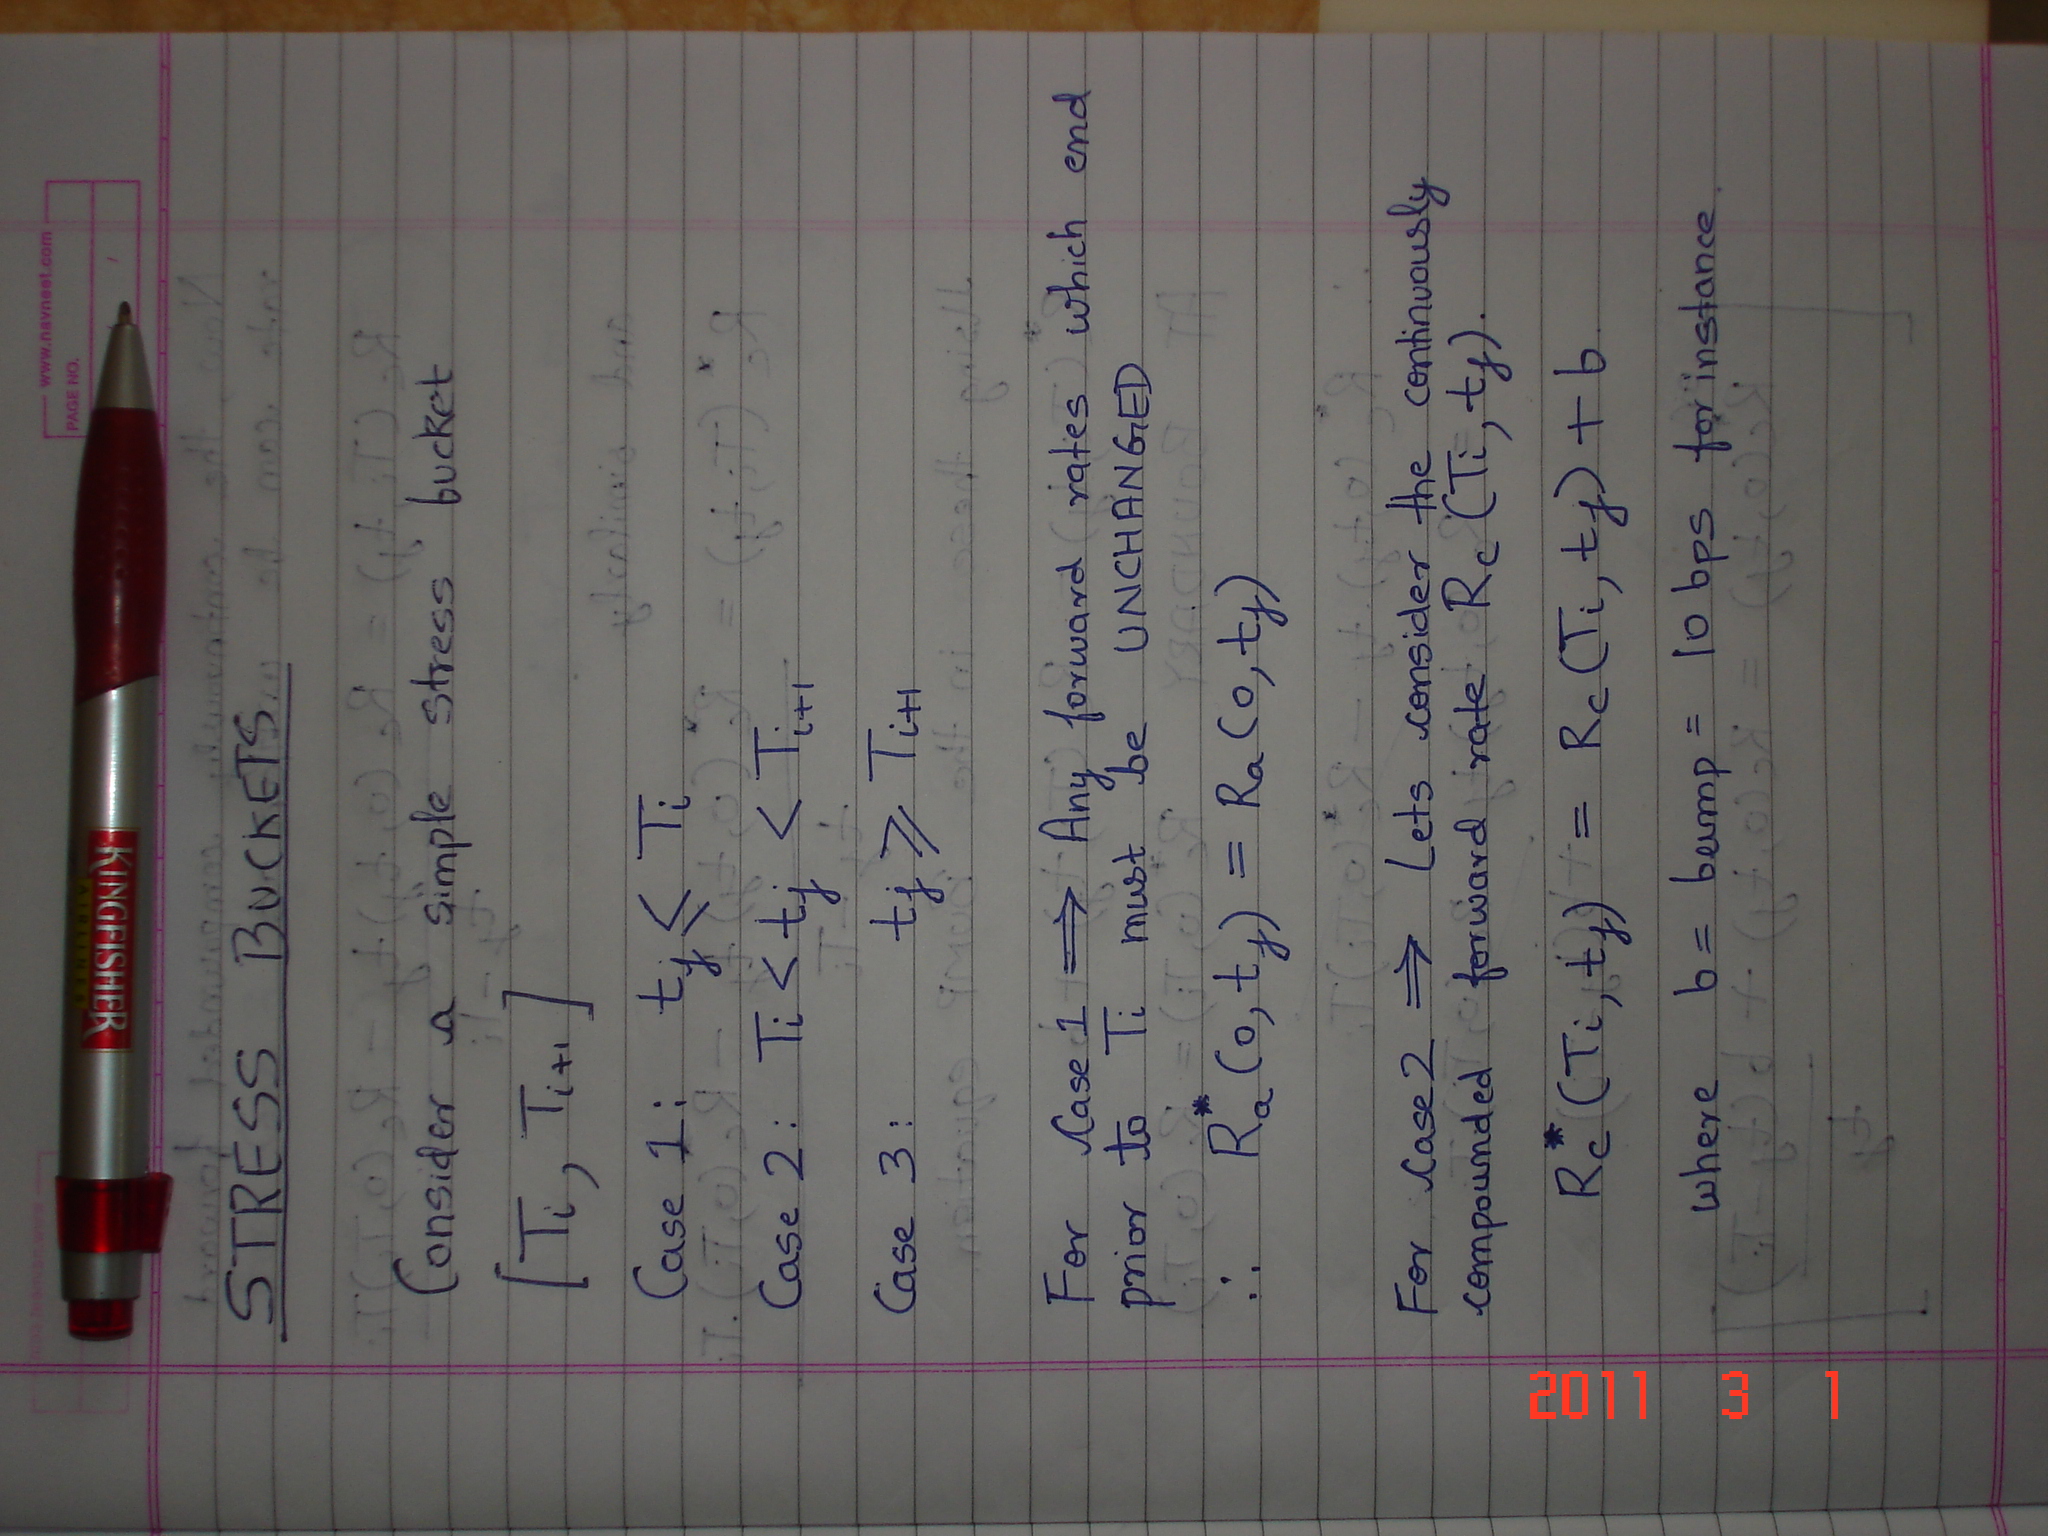 www.navneet.com
PAGE NO.
KINGFISHER
AIRLINES
STRESS BUCKETS
Consider a simple stress bucket
[Ti, Ti+1]
Case 1: tj ≤ Ti
Case 2: Ti < tj < Ti+1
Case 3: tj ⩾ Ti+1
For Case 1 ⟹ Any forward rates which end
prior to Ti must be UNCHANGED
∴ Ra*(0, tj) = Ra(0, tj)
For Case 2 ⇒ Lets consider the continuously
compounded forward rate Rc(Ti, tj).
Rc*(Ti, tj) = Rc(Ti, tj) + b
where b = bump = 10 bps for instance.
2011 3 1